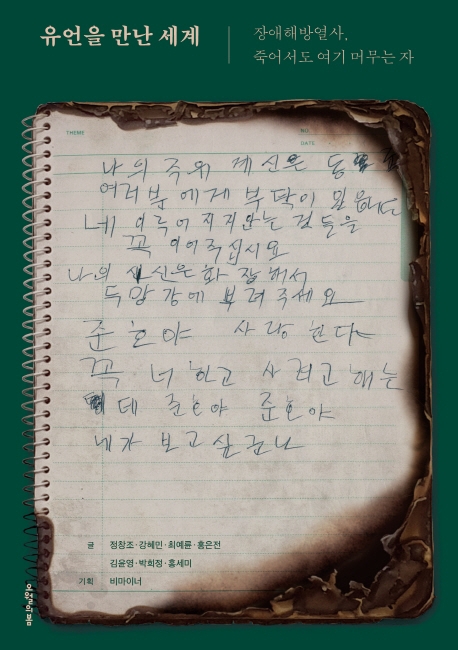 유언을 만난 세계
장애해방열사,
죽어서도 여기 머무는 자
THEME
NO.
DATE
나의 죽위 제신은 동
여러분에게 부탁이 있음니다
네 이루어지지 안는 것들을
꼭 이어주십시요
나의 시신은 화장해서
두망강에 뿌려주세요
준호야 사랑한다
꼭 너하고 사려고 해는
데 준호야 준호야
네가 보고 싶군나
글 정창조·강혜민·최예륜·홍은전
김윤영·박희정·홍세미
기획 비마이너
오월의봄